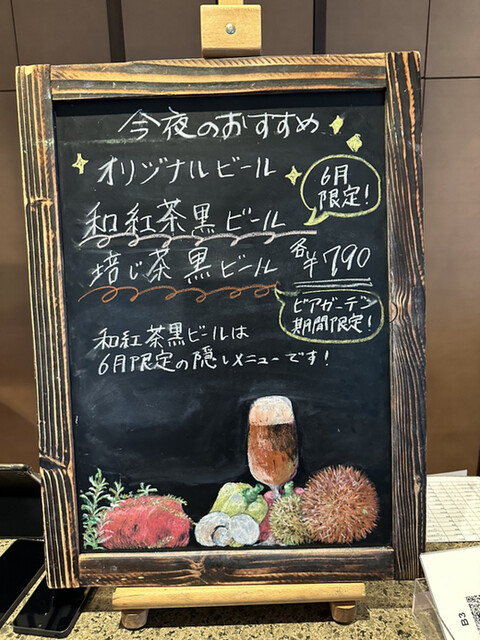 今夜のおすすめ
オリジナルビール
6月
限定!
和紅茶黒ビール
焙じ茶黒ビール
各¥790
ビアガーデン
期間限定!
和紅茶黒ビールは
6月限定の隠しメニューです!
B3